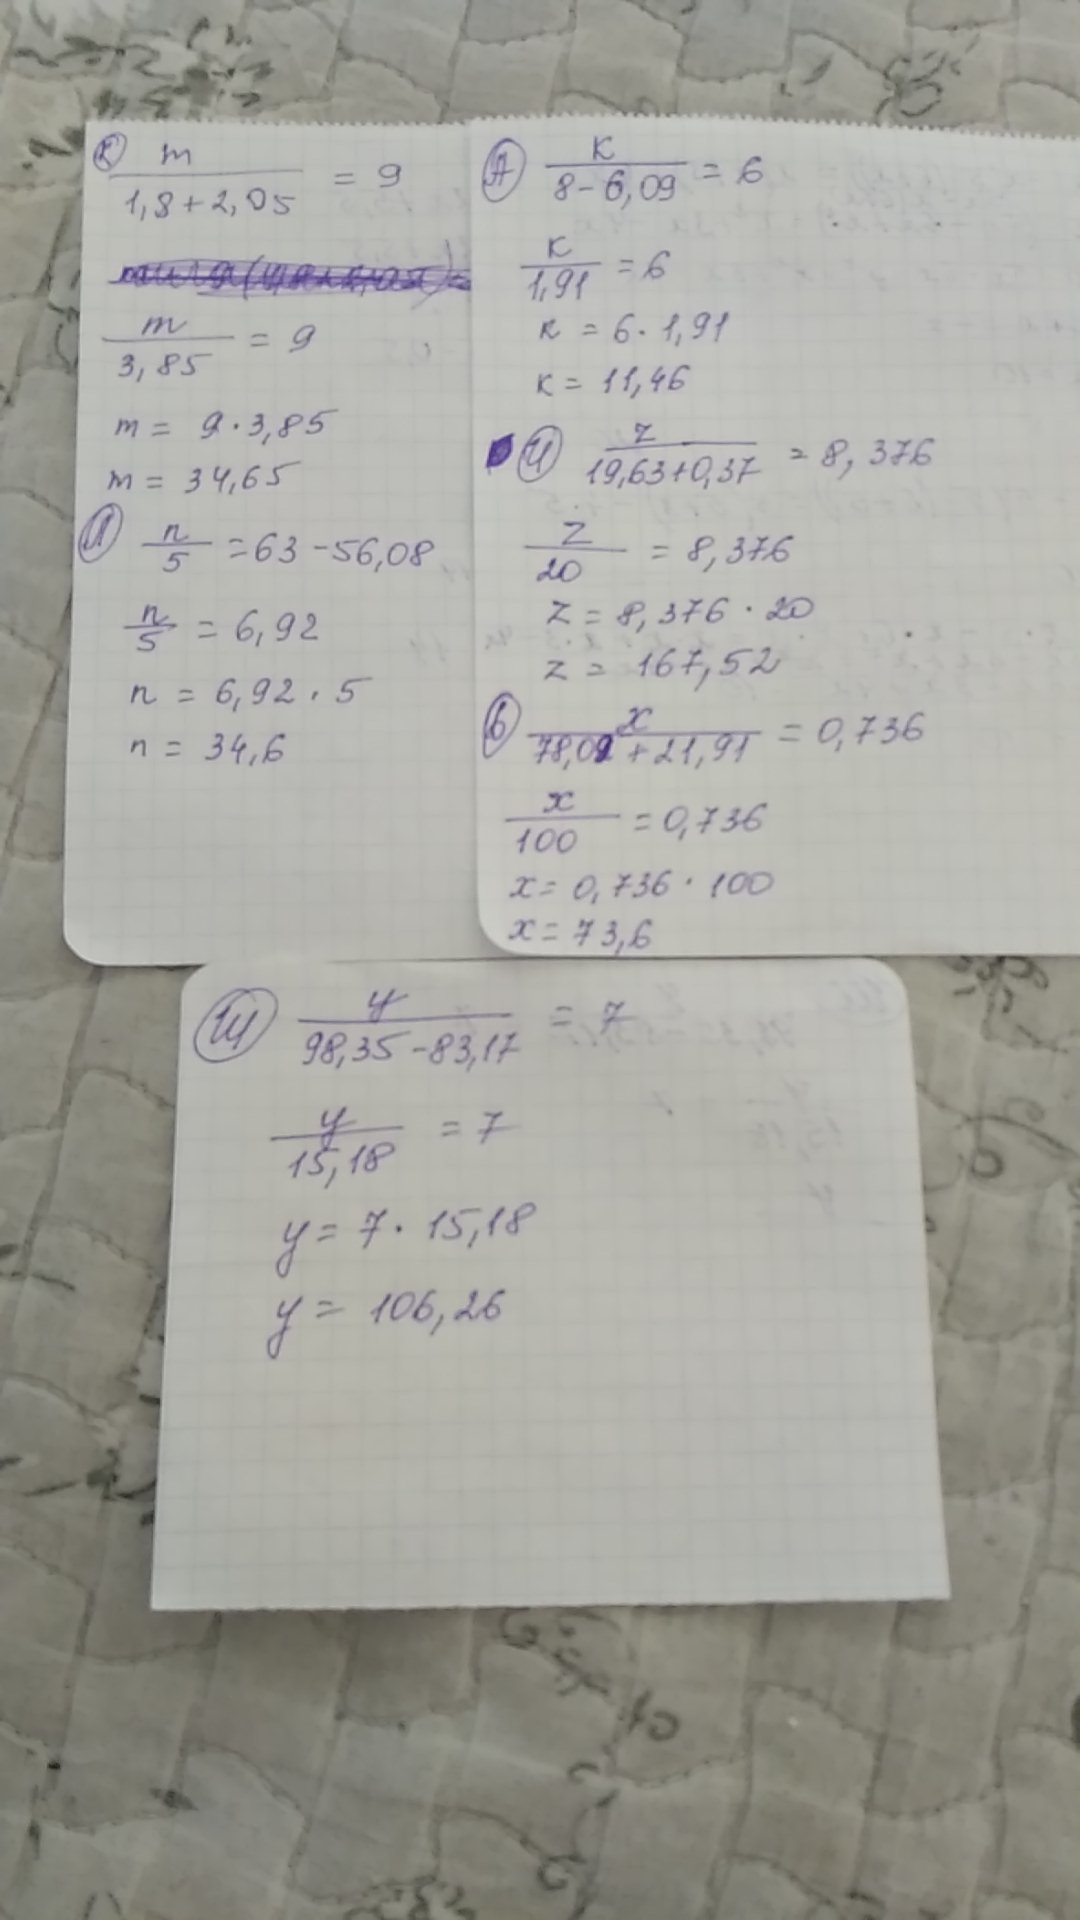 К) m/(1,8+2,05) = 9
m/3,85 = 9
m = 9·3,85
m = 34,65
Л) n/5 = 63-56,08
n/5 = 6,92
n = 6,92·5
n = 34,6
А) к/(8-6,09) = 6
к/1,91 = 6
к = 6·1,91
к = 11,46
И) z/(19,63+0,37) = 8,376
z/20 = 8,376
z = 8,376·20
z = 167,52
Б) x/(78,09+21,91) = 0,736
x/100 = 0,736
x = 0,736·100
x = 73,6
Щ) y/(98,35-83,17) = 7
y/15,18 = 7
y = 7·15,18
y = 106,26